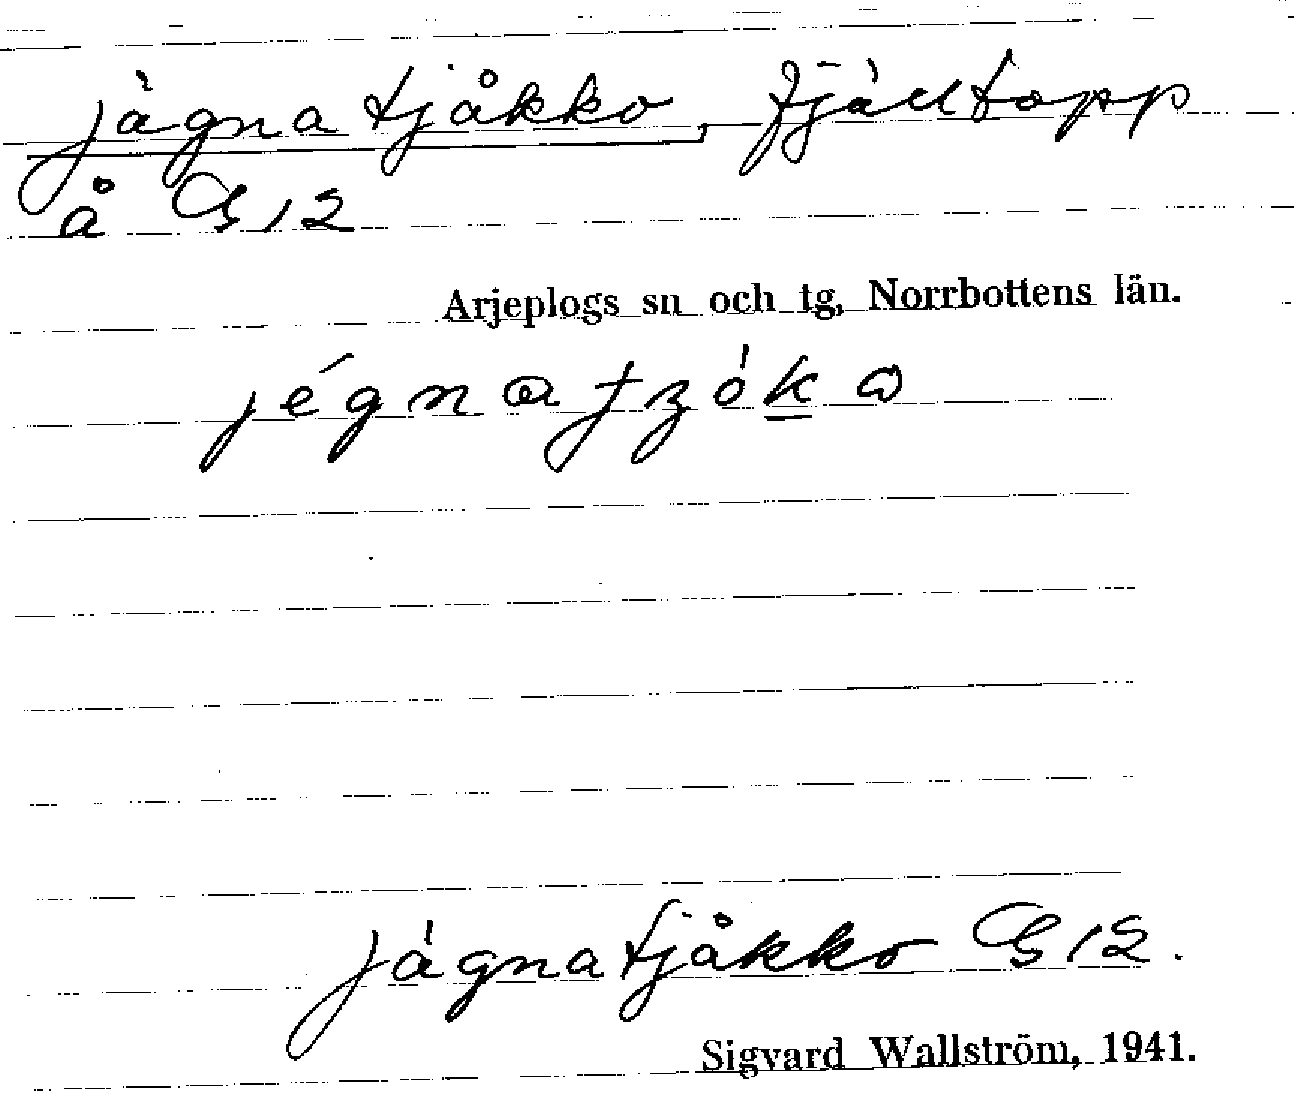 jàgnatjåkko, fjälltopp
å G 12
Arjeplogs sn och tg, Norrbottens län.
jágnatjåkko G 12.
Sigvard Wallström, 1941.